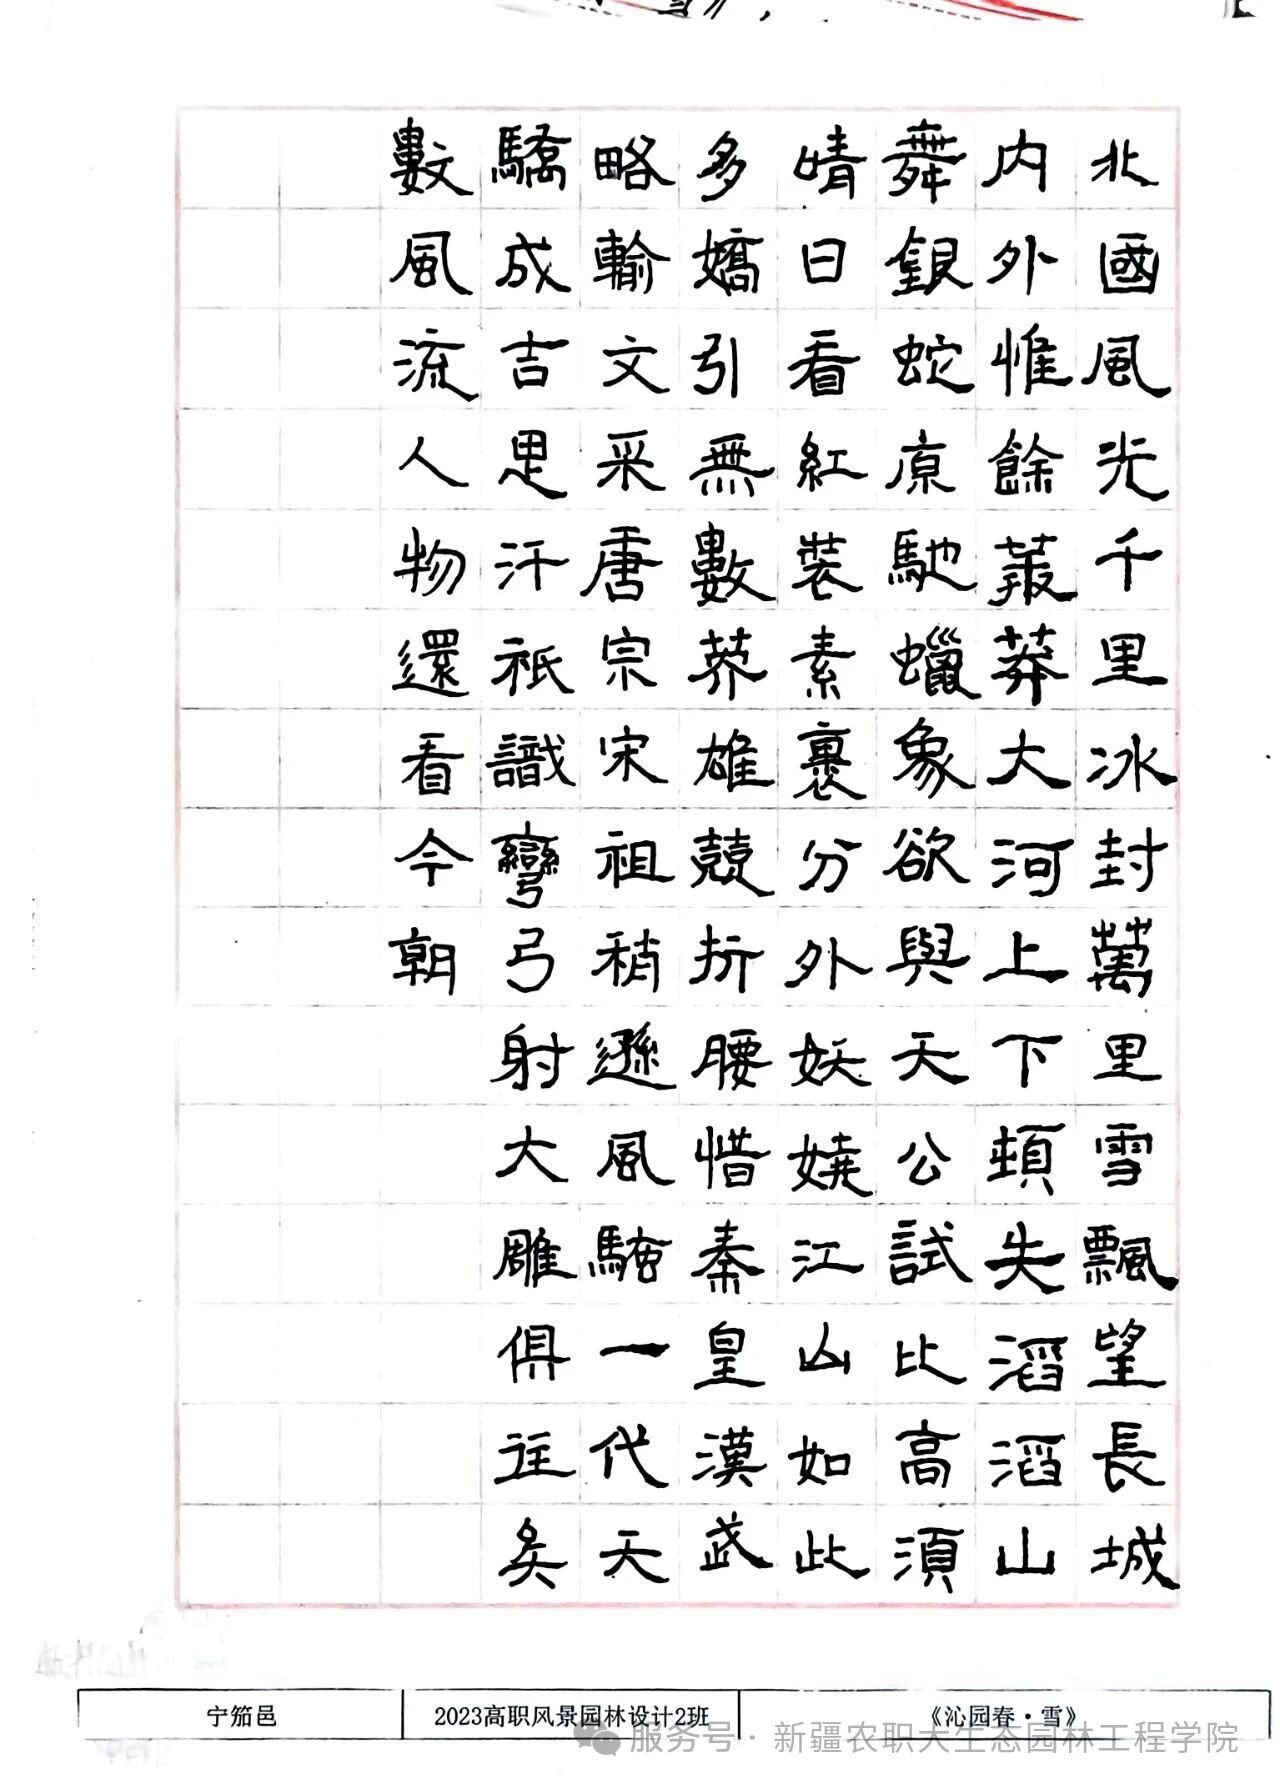 北國風光千里冰封萬里雪飄望長城
内外惟餘莽大河上下頓失滔滔山
舞銀蛇原馳蠟象欲與天公試比高須
晴日看紅裝素裹分外妖嬈江山如此
多嬌引無數英雄競折腰惜秦皇漢武
略輸文采唐宗宋祖稍遜風騷一代天
驕成吉思汗祇識彎弓射大雕俱往矣
數風流人物還看今朝
宁笳邑
2023高职风景园林设计2班
《沁园春·雪》
服务号·新疆农职大生态园林工程学院